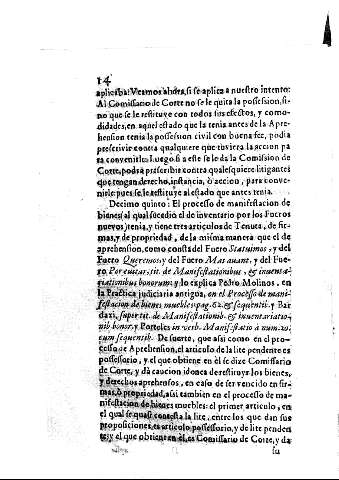 14
aplicaba: Veamos ahora, si se aplica a nuestro intento:
Al Comissario de Corte no se le quita la possession, si-
no que se le restituye con todos sus efectos, y como-
didades, en aquel estado que tenia antes de la Apre-
hension tenia la possession civil con buena fee, podia
prescrivir contra qualquiere que tuviera la accion pa
ra convenirle: Luego si a este se le da la Comission de
Corte, podrà prescribir contra qualesquiere litigantes
que tengan derecho, instancia, ò accion, para conve-
nirle: pues se le restituye al estado que antes tenia.
Decimo quinto: El processo de manifestacion de
bienes, al qual sucediò el de inventario por los Fueros
nuevos, tenia, y tiene tres articulos de Tenuta, de fir-
mas, y de propriedad, de la misma manera que el de
aprehension, como consta del Fuero Statuimos, y del
Fuero Queremos, y del Fuero Mas avant, y del Fue-
ro Por quitar, tit. de Manifestationibus, & inventa-
riationibus bonorum: y lo explica Pedro Molinos, en
la Practica judiciaria antigua, en el Processo de mani-
festacion de bienes muebles, pag. 62. & sequentib. y Bar
daxi, super tit. de Manifestationib. & inventariatio-
nib. bonor. y Portoles in verb. Manifestatio à num. 20.
cum sequentib. De suerte, que assi como en el pro-
cesso de Aprehension, el articulo de la lite pendente es
possessorio, y el que obtiene en èl se dize Comissario
de Corte, y dà caucion idonea de restituir los bienes,
y derechos aprehensos, en caso de ser vencido en fir-
mas, ò propriedad, assi tambien en el processo de ma-
nifestacion de bienes muebles: el primer articulo, en
el qual se quasi contesta la lite, entre los que dan sus
proposiciones, es articulo possessorio, y de lite penden
te; y el que obtiene en èl, es Comissario de Corte, y da
su